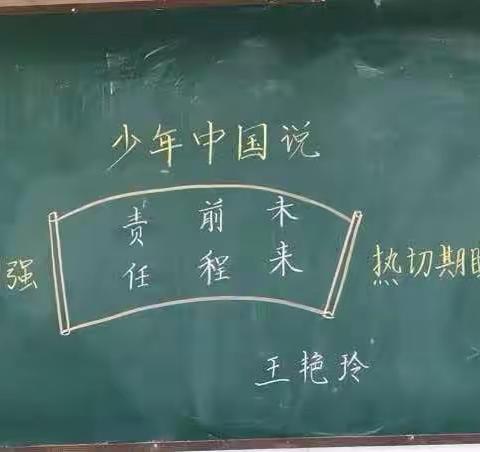 少年中国说
责任
前程
未来
强
热切期
王艳玲